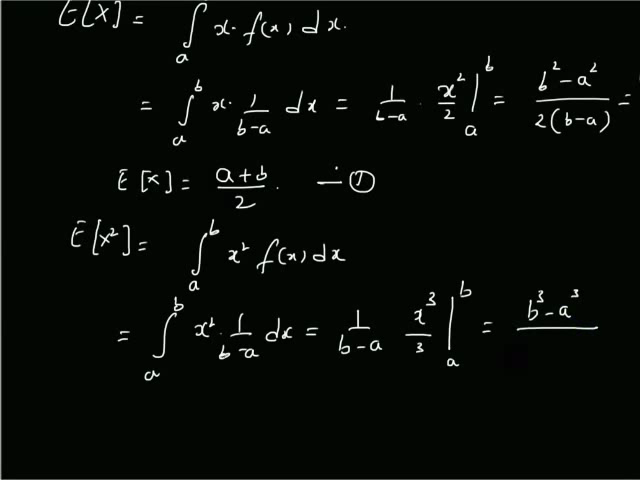 E[X] = ∫ₐ x· f(x) dx.
= ∫ₐᵇ x· 1/(b-a) dx = 1/(b-a) · x²/2 |ₐᵇ = (b²-a²)/(2(b-a)) =
E[X] = (a+b)/2 · — ①
E[X²] = ∫ₐᵇ x² f(x) dx
= ∫ₐᵇ x² · 1/(b-a) dx = 1/(b-a) x³/3 |ₐᵇ = (b³-a³)/